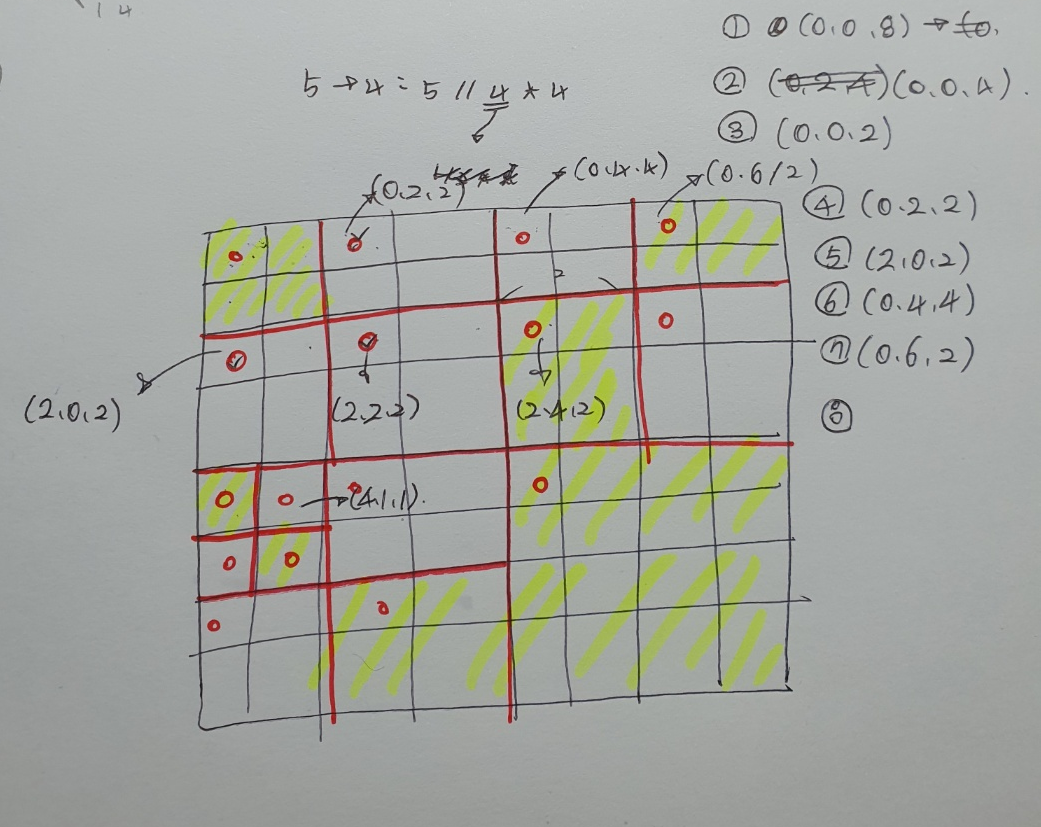 14
① (0.0.8) → to.
5 → 4 = 5 // 4 * 4
② (0.2.4) (0.0.4).
③ (0.0.2)
(0.2.2)
(0.4.4)
(0.6/2)
④ (0.2.2)
⑤ (2.0.2)
2
⑥ (0.4.4)
⑦ (0.6.2)
(2.0.2)
(2.2.2)
(2.4.2)
⑧
(4.1.1).